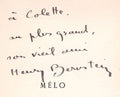 à Colette,
au plus grand,
son vieil ami
Henry Bernstein
MÉLO